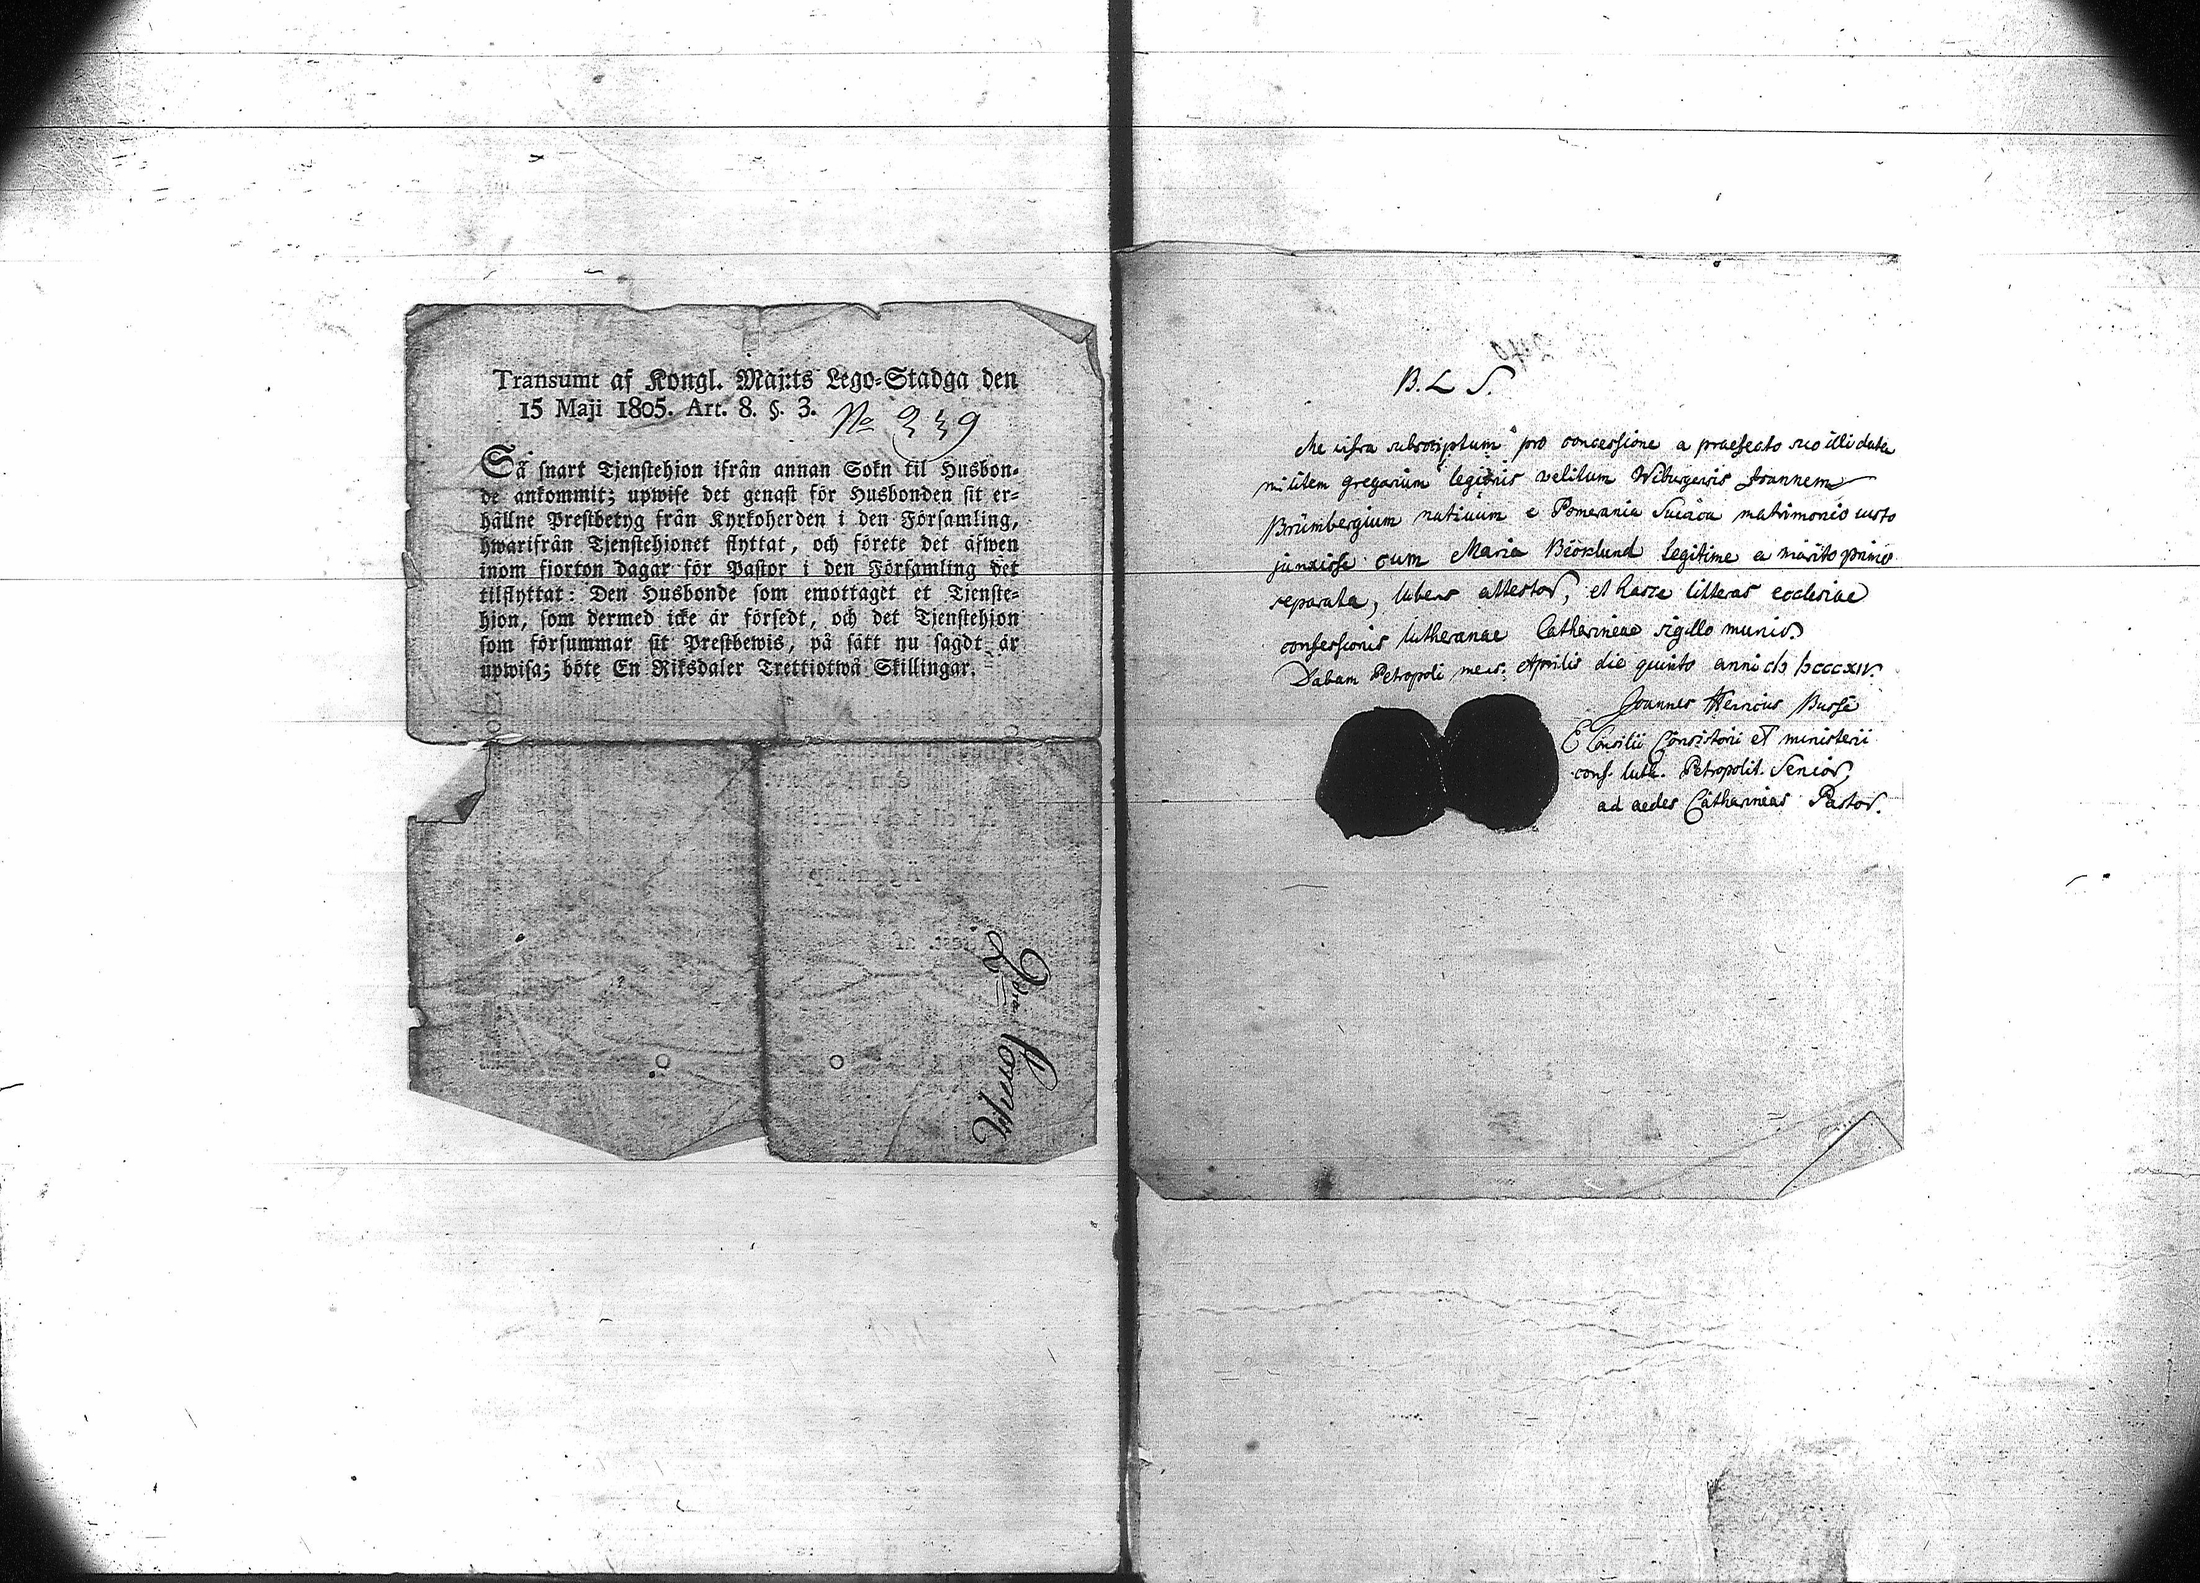 Transumt af Kongl. Maj:ts Lego-Stadga den
15 Maji 1805. Art. 8. §. 3.
No 339
Så snart Tjenstehjon ifrån annan Sokn til Husbon-
de ankommit; upwise det genast för Husbonden sit er-
hållne Prestbetyg från Kyrkoherden i den Församling,
hwarifrån Tjenstehjonet flyttat, och förete det äfwen
inom fjorton dagar för Pastor i den Församling det
tilflyttat: Den Husbonde som emottaget et Tjenste-
hjon, som dermed icke är försedt, och det Tjenstehjon
som försummar sit Prestbewis, på sätt nu sagdt är
upwisa; böte En Riksdaler Trettiotwå Skillingar.
B. L. S.
Me infra subscriptum pro concessione a praefecto suo illi data
militem gregarium legionis velitum Wiburgensis Joannem
Brümbergium natiuum e Pomerania Suecica matrimonio iusto
junxisse cum Maria Björklund legitime a marito primo
separata, lubens attestor, et hasce litteras ecclesiae
confessionis lutheranae Catharineae sigillo munio.
Dabam Petropoli mens. Aprilis die quinto anni
Joannes Henricus Busse
E Consilii Consistorii et ministerii
conf. luth. Petropolit. Senior,
ad aedes Catharineas Pastor.